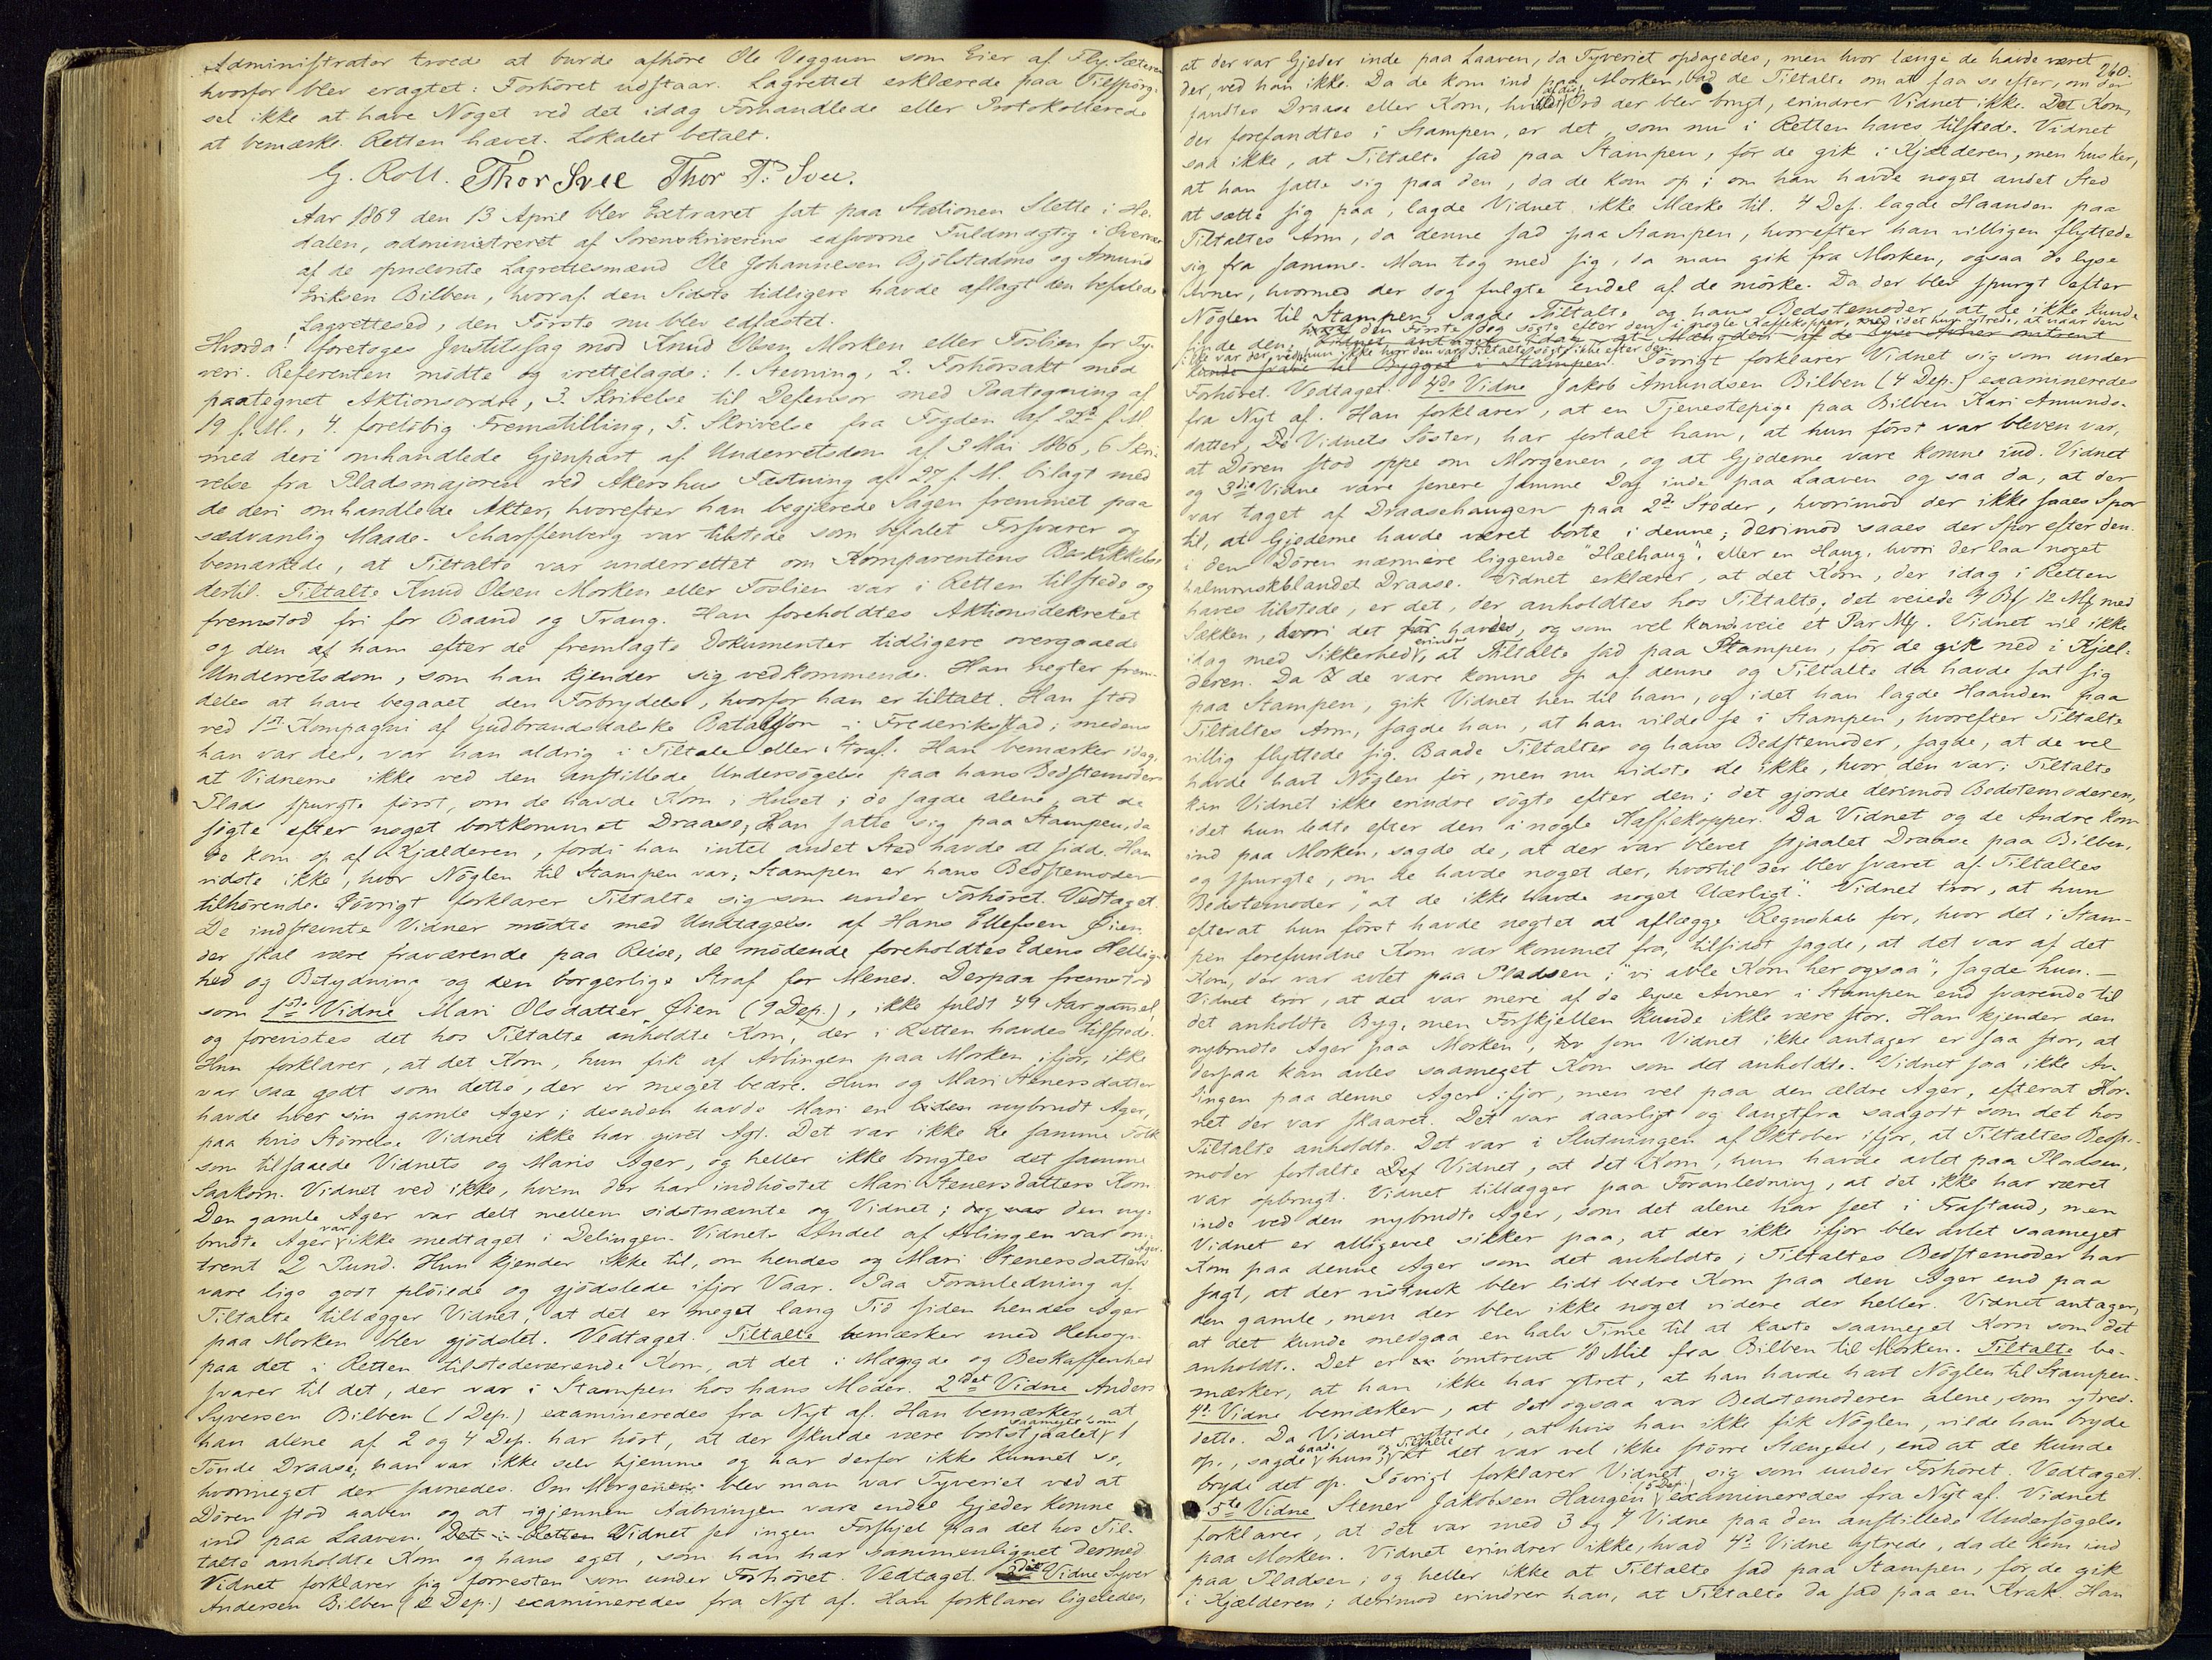 Administrator troede at burde afhöre Ole Veggum som Eier af Fly-Sæteren
hvorfor blev eragtet: Forhöret udstaar. Lagrettet erklærede paa Tilspörg-
sel ikke at have Noget ved det idag Forhandlede eller Protokollerede
at bemærke. Retten hævet. Lokalet betalt.
G. Roll. Thor Svee Thor T. Svee.
Aar 1869 den 13 April blev Extraret sat paa Stationen Slette i He-
dalen, administreret af Sorenskriverens edsvorne Fuldmægtig i Overvær
af de opnævnte Lagrettesmænd Ole Johannesen Bjölstadmo og Amund
Eriksen Bilben, hvoraf den Sidste tidligere havde aflagt den befalede
Lagretteseed, den Förste nu blev edfæstet.
Hvorda! foretoges Justitssag mod Knud Olsen Morken eller Foslien for Ty-
veri. Referenten mödte og irettelagde: 1. Stevning, 2. Forhörsakt med
paategnet Aktionsordre, 3. Skrivelse til Defensor med Paategning af
19 f. M., 4. forelöbig Fremstilling, 5. Skrivelse fra Fogden af 22de f. M.
med deri omhandlede Gjenpart af Underretsdom af 3 Mai 1866, 6 Skri-
velse fra Pladsmajoren ved Akershus Fæstning af 27 f. M. bilagt med
de deri omhandlede Akter, hvorefter han begjærede Sagen fremmet paa
sædvanlig Maade. Scharffenberg var tilstede som befalet Forsvarer og
bemærkede, at Tiltalte var underrettet om Komparentens Beskikkelse
dertil. Tiltalte Knud Olsen Morken eller Foslien var i Retten tilstede og
fremstod fri for Baand og Tvang. Han foreholdtes Aktionsdekretet
og den af ham efter de fremlagte Dokumenter tidligere overgaaede
Underretsdom, som han kjender sig vedkommende. Han negter frem-
deles at have begaaet den Forbrydelse, hvorfor han er tiltalt. Han stod
ved 1ste Kompagni af Gudbrandsdalske Bataljon i Frederikstad; medens
han var der, var han aldrig i Tiltale eller Straf. Han bemærker idag,
at Vidnerne ikke ved den anstillede Undersögelse paa hans Bedstemoders
Plads spurgte först, om de havde Korn i Huset; de sagde alene, at de
sögte efter noget bortkommet Draase, Han satte sig paa Stampen, da
de kom op af Kjælderen, fordi han intet andet Sted havde at sidde. Han
vidste ikke, hvor Nöglen til Stampen var; Stampen er hans Bedstemoder
tilhörende. Iövrigt forklarer Tiltalte sig som under Forhöret. Vedtaget.
De indstevnte Vidner mödte med Undtagelse af Hans Ellefsen Øien,
der skal være fraværende paa Reise, de mödende foreholdtes Edens Hellig-
hed og Betydning og den borgerlige Straf for Mened. Derpaa fremstod
som 1ste Vidne Mari Olsdatter Øien (9 Dep.), ikke fuldt 49 Aar gammel,
og forevistes det hos Tiltalte anholdte Korn, der i Retten havdes tilstede.
Hun forklarer, at det Korn, hun fik af Avlingen paa Morken ifjor, ikke
var saa godt som dette, der er meget bedre. Hun og Mari Stenersdatter
havde hver sin gamle Ager; desuden havde Mari en liden nybrudt Ager,
paa hvis Störrelse Vidnet ikke har givet Agt. Det var ikke de samme Folk
som tilsaaede Vidnets og Maris Ager, og heller ikke brugtes det samme
Saakorn. Vidnet ved ikke, hvem der har indhöstet Mari Stenersdatters Korn
Den gamle Ager var delt mellem sidstnævnte og Vidnet; dog var den ny-
brudte Ager var ikke medtaget i Delingen. Vidnets Andel af Avlingen var om-
trent 2 Pund. Hun kjender ikke til, om hendes og Mari Stenersdatters Ager
vare lige godt plöiede og gjödslede ifjor Vaar. Paa Foranledning af
Tiltalte tillægger Vidnet, at det er meget lang Tid siden hendes Ager
paa Morken blev gjödslet. Vedtaget. Tiltalte bemærker med Hensyn
paa det i Retten tilstedeværende Korn, at det i Mængde og Beskaffenhed
svarer til det, der var i Stampen hos hans Moder. 2det Vidne Anders
Syversen Bilben (1 Dep.) examineredes fra Nyt af. Han bemærker, at
han alene af 2 og 4 Dep. har hört, at der skulde være bortstjaalet saameget som 1
Tönde Draase; han var ikke selv hjemme og har derfor ikke kunnet se,
hvormeget der savnedes. Om Morgenen blev man var Tyveriet ved at
Dören stod aaben og at igjennem Aabningen vare endel Gjeder komne
ind paa Laaven. Det i Retten Vidnet ser ingen Forskjel paa det hos Til-
talte anholdte Korn og hans eget, som han har sammenlignet dermed
Vidnet forklarer sig forresten som under Forhöret. Vedtaget. 3die Vidne Syver
Andersen Bilben (2 Dep.) examineredes fra Nyt af. Han forklarer ligeledes,
260.
at der var Gjeder inde paa Laaven, da Tyveriet opdagedes, men hvor længe de havde været
der, ved han ikke. Da de kom ind paa Morken, bad de Tiltalte om at faa se efter, om der
fandtes Draase eller Korn, hvilket af disse Ord der blev brugt, erindrer Vidnet ikke. Det Korn,
der forefandtes i Stampen, er det, som nu i Retten haves tilstede. Vidnet
saa ikke, at Tiltalte sad paa Stampen, för de gik i Kjælderen, men husker,
at han satte sig paa den, da de kom op; om han havde noget andet Sted
at sætte sig paa, lagde Vidnet ikke Mærke til. 4 Dep. lagde Haanden paa
Tiltaltes Arm, da denne sad paa Stampen, hvorefter han villigen flyttede
sig fra samme. Man tog med sig, da man gik fra Morken, ogsaa de lyse
Avner, hvormed der dog fulgte endel af de mörke. Da der blev spurgt efter
Nöglen til Stampen, sagde Tiltalte og hans Bedstemoder, at de ikke kunde
den Förste dog sögte efter den i nogle Kaffekopper, idet hun ytrede, at naar den
finde den. Vidnet antager idag, at Mængden af de lyse Avner omtrent
ikke var der, ved hun ikke hvor den var, Tiltalte sögte ikke efter den.
kunde svare til Bygget i Stampen. Iövrigt forklarer Vidnet sig som under
Forhöret. Vedtaget. 4de Vidne Jakob Amundsen Bilben (4 Dep.) examineredes
fra Nyt af. Han forklarer, at en Tjenestepige paa Bilben Kari Amunds-
datter, Vidnets Söster, har fortalt ham, at hun först var bleven var,
at Dören stod oppe om Morgenen, og at Gjederne vare komne ind. Vidnet
og 3die Vidne vare senere samme Dag inde paa Laaven og saa da, at der
var taget af Draasehaugen paa 2de Steder, hvorimod der ikke saaes Spor
til, at Gjederne havde været borte i denne; derimod saaes der Spor efter dem
i den Dören nærmere liggende "Hælhaug", eller en Haug, hvori der laa noget
halmmaskblandet Draase. Vidnet erklærer, at det Korn, der idag i Retten
haves tilstede, er det, der anholdtes hos Tiltalte; det veiede 4 Bpd 12 Mk med
Sækken, hvori det havdes, og som vel kunde veie et Par Mk. Vidnet vil ikke
idag med Sikkerhed erindre, at Tiltalte sad paa Stampen, för de gik ned i Kjæl-
deren. Da de vare komne op af denne og Tiltalte da havde sat sig
paa Stampen, gik Vidnet hen til ham, og idet han lagde Haanden paa
Tiltaltes Arm, sagde han, at han vilde se i Stampen, hvorefter Tiltalte
villig flyttede sig. Baade Tiltalte og hans Bedstemoder, sagde, at de vel
havde havt Nöglen för, men nu vidste de ikke, hvor den var; Tiltalte
kan Vidnet ikke erindre sögte efter den; det gjorde derimod Bedstemoderen,
idet hun ledte efter den i nogle Kaffekopper. Da Vidnet og de Andre kom
ind paa Morken, sagde de, at der var blevet stjaalet Draase paa Bilben,
og spurgte, om de havde noget der, hvortil der blev svaret af Tiltaltes
Bedstemoder, "at de ikke havde noget Uærligt". Vidnet tror, at hun
efterat hun först havde negtet at aflægge Regnskab for, hvor det i Stam-
pen forefundne Korn var kommet fra, tilsidst sagde, at det var af det
Korn, der var avlet paa Pladsen; "vi avle Korn her ogsaa", sagde hun. —
Vidnet tror, at det var mere af de lyse Avner i Stampen end svarende til
det anholdte Byg, men Forskjellen kunde ikke være stor. Han kjender den
nybrudte Ager paa Morken, som Vidnet ikke antager er saa stor, at
derpaa kan avles saameget Korn som det anholdte. Vidnet saa ikke Av-
lingen paa denne Ager ifjor, men vel paa den ældre Ager, efterat Kor-
net der var skaaret. Det var daarligt og langtfra saagodt som det hos
Tiltalte anholdte. Det var i Slutningen af Oktober ifjor, at Tiltaltes Bedste-
moder fortalte Vidnet, at det Korn, hun havde avlet paa Pladsen,
var opbrugt. Vidnet tillægger paa Foranledning, at det ikke har været
inde ved den nybrudte Ager, som det alene har seet i Frastand, men
Vidnet er alligevel sikker paa, at der ikke ifjor blev avlet saameget
Korn paa denne Ager som det anholdte; Tiltaltes Bedstemoder har
sagt, at der vistnok blev lidt bedre Korn paa den Ager end paa
den gamle, men der blev ikke noget videre der heller. Vidnet antager,
at det kunde medgaa en halv Time til at kaste saameget Korn som det
anholdte. Det er omtrent 1/8 Mil fra Bilben til Morken. Tiltalte be-
mærker, at han ikke har ytret, at han havde havt Nöglen til Stampen.
4de Vidne bemærker, at det ogsaa var Bedstemoderen alene, som ytrede
dette. Da Vidnet ytrede, at hvis han ikke fik Nöglen, vilde han bryde
op, sagde baade hun og Tiltalte at det var vel ikke större Stængsel, end at de kunde
bryde det op. Iövrigt forklarer Vidnet sig som under Forhöret. Vedtaget.
5te Vidne Stener Jakobsen Haugen (5 Dep) examineredes fra Nyt af. Vidnet
forklarer, at det var med 3 og 4 Vidne paa den anstillede Undersögelse
paa Morken. Vidnet erindrer ikke, hvad 4de Vidne ytrede, da de kom ind
paa Pladsen; og heller ikke at Tiltalte sad paa Stampen, för de gik
i Kjælderen; derimod erindrer han, at Tiltalte da sad paa en Krak. Han